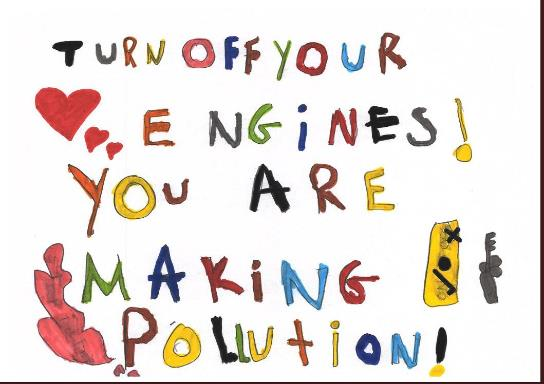 TURN OFF YOUR
ENGiNES!
YOU ARE
MAKiNG
POLLUTiON!